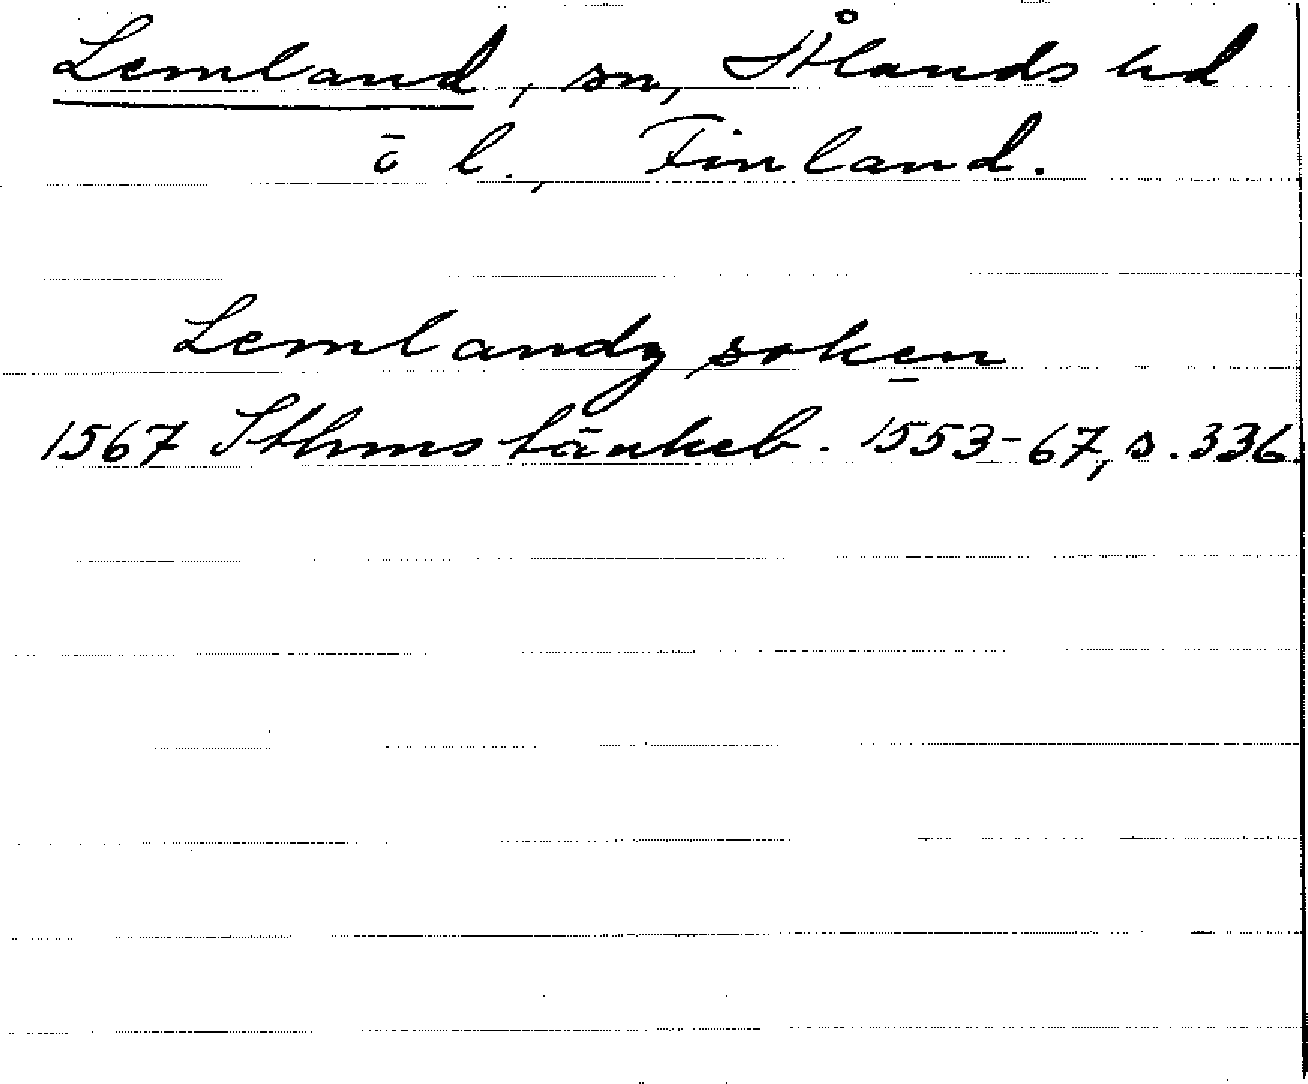 Lemland, sn, Ålands hd
o l., Finland.
Lemlandz soken
1567 Sthms tänkeb. 1553-67, s. 336.